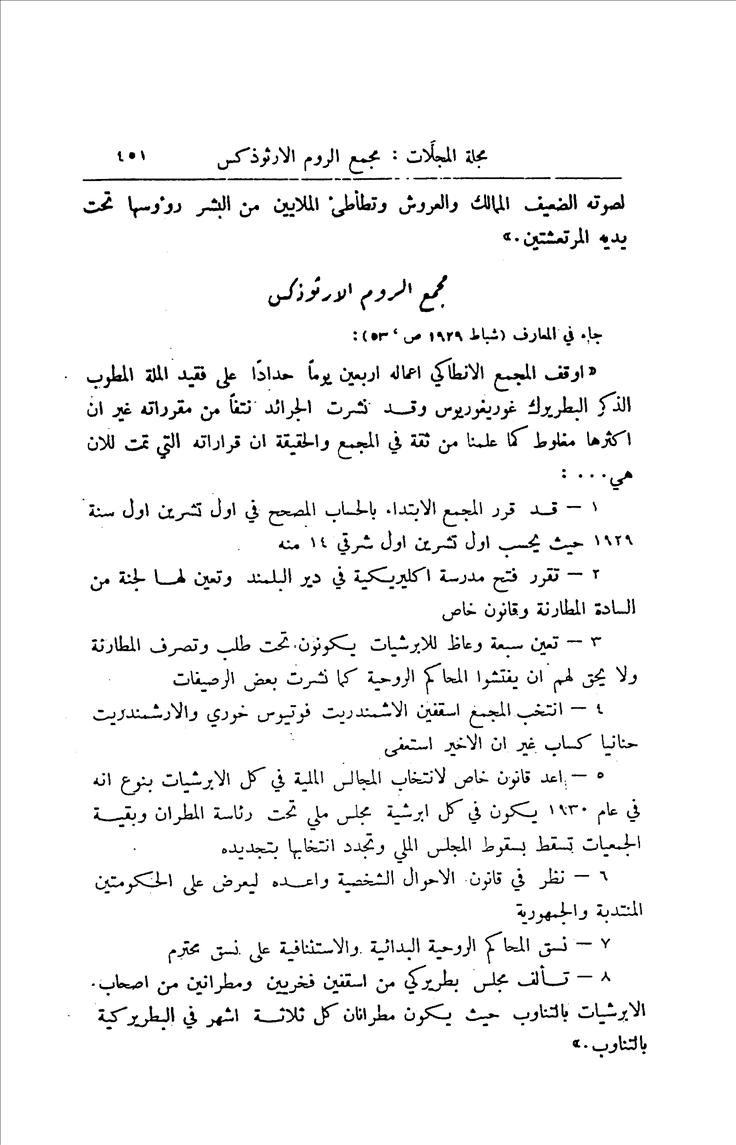 مجلة المجلّات : مجمع الروم الارثوذكس ٤٥١
لصوته الضعيف الممالك والعروش وتطأطئ الملايين من البشر رؤوسها تحت
يديه المرتعشتين.»
مجمع الروم الارثوذكس
جاء في المعارف (شباط ١٩٢٩ ص ٥٣،):
«اوقف المجمع الانطاكي اعماله اربعين يوماً حدادًا على فقيد الملة المطوب
الذكر البطريرك غوريغوريوس وقد نشرت الجرائد نتفاً من مقرراته غير ان
اكثرها مغلوط كما علمنا من ثقة في المجمع والحقيقة ان قراراته التي تمت للان
هي.... :
١ — قد قرر المجمع الابتداء بالحساب المصحح في اول تشرين اول سنة
١٩٢٩ حيث يحسب اول تشرين اول شرقي ١٤ منه
٢ — تقرر فتح مدرسة اكليريكية في دير البلمند وتعين لها لجنة من
السادة المطارنة وقانون خاص
٣ — تعين سبعة وعاظ للابرشيات يكونون تحت طلب وتصرف المطارنة
ولا يحق لهم ان يفتشوا المحاكم الروحية كما نشرت بعض الرصيفات
٤ — انتخب المجمع اسقفين الاشمندريت فوتيوس خوري والارشمندريت
حنانيا كساب غير ان الاخير استعفى
٥ — اعد قانون خاص لانتخاب المجالس الملية في كل الابرشيات بنوع انه
في عام ١٩٣٠ يكون في كل ابرشية مجلس ملي تحت رئاسة المطران وبقية
الجمعيات تسقط بسقوط المجلس الملي وتجدد انتخابها بتجديده
٦ — نظر في قانون الاحوال الشخصية واعده ليعرض على الحكومتين
المنتدبة والجمهورية
٧ — نسق المحاكم الروحية البدائية والاستئنافية على نسق محترم
٨ — تألف مجلس بطريركي من اسقفين فخريين ومطرانين من اصحاب
الابرشيات بالتناوب حيث يكون مطرانان كل ثلاثة اشهر في البطريركية
بالتناوب.»